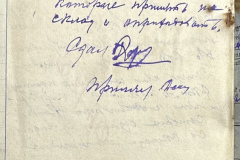 которые принять на
склад и оприходовать.
Сдал
Принял